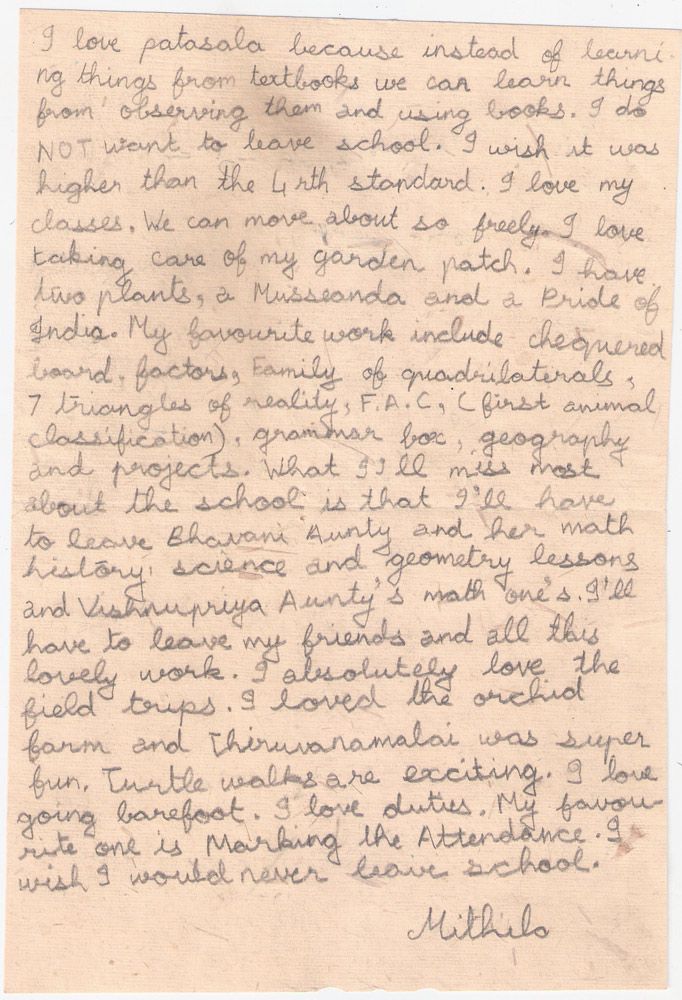 I love patasala because instead of learni-
ng things from textbooks we can learn things
from observing them and using books. I do
NOT want to leave school. I wish it was
higher than the 4rth standard. I love my
classes. We can move about so freely. I love
taking care of my garden patch. I have
two plants, a Musseanda and a Pride of
India. My favourite work include chequered
board, factors, Family of quadrilaterals,
7 triangles of reality, F.A.C, (first animal
classification), grammar box, geography
and projects. What I'll miss most
about the school is that I'll have
to leave Bhavani Aunty and her math
history, science and geometry lessons
and Vishnupriya Aunty's math one's. I'll
have to leave my friends and all this
lovely work. I absolutely love the
field trips. I loved the orchid
farm and Thiruvanamalai was super
fun. Turtle walks are exciting. I love
going barefoot. I love duties. My favou-
rite one is Marking the Attendance. I
wish I would never leave school.
Mithila